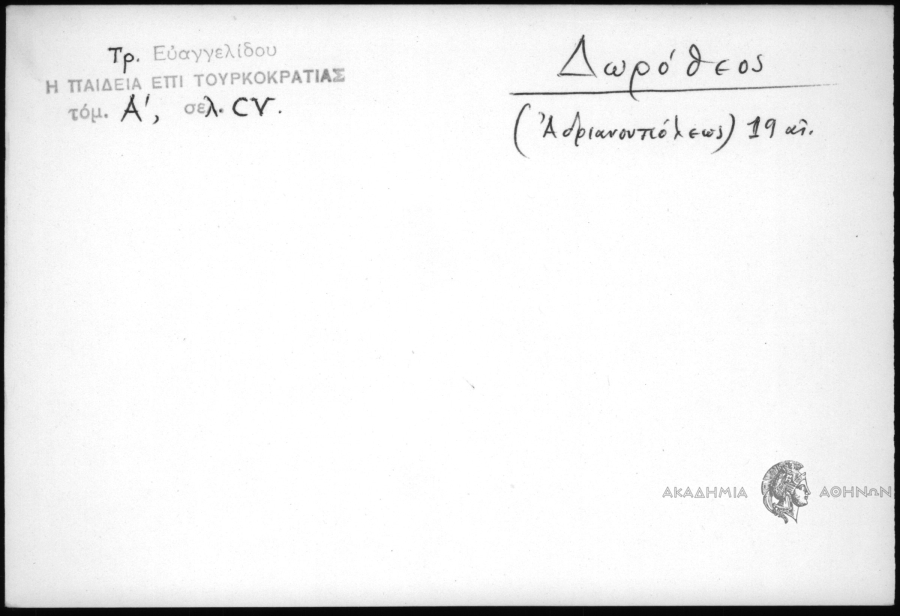 Τρ. Εὐαγγελίδου
Η ΠΑΙΔΕΙΑ ΕΠΙ ΤΟΥΡΚΟΚΡΑΤΙΑΣ
τόμ. Α', σελ. CV.
Δωρόθεος
(Ἀδριανουπόλεως) 19 αἰ.
ΑΚΑΔΗΜΙΑ ΑΘΗΝΩΝ